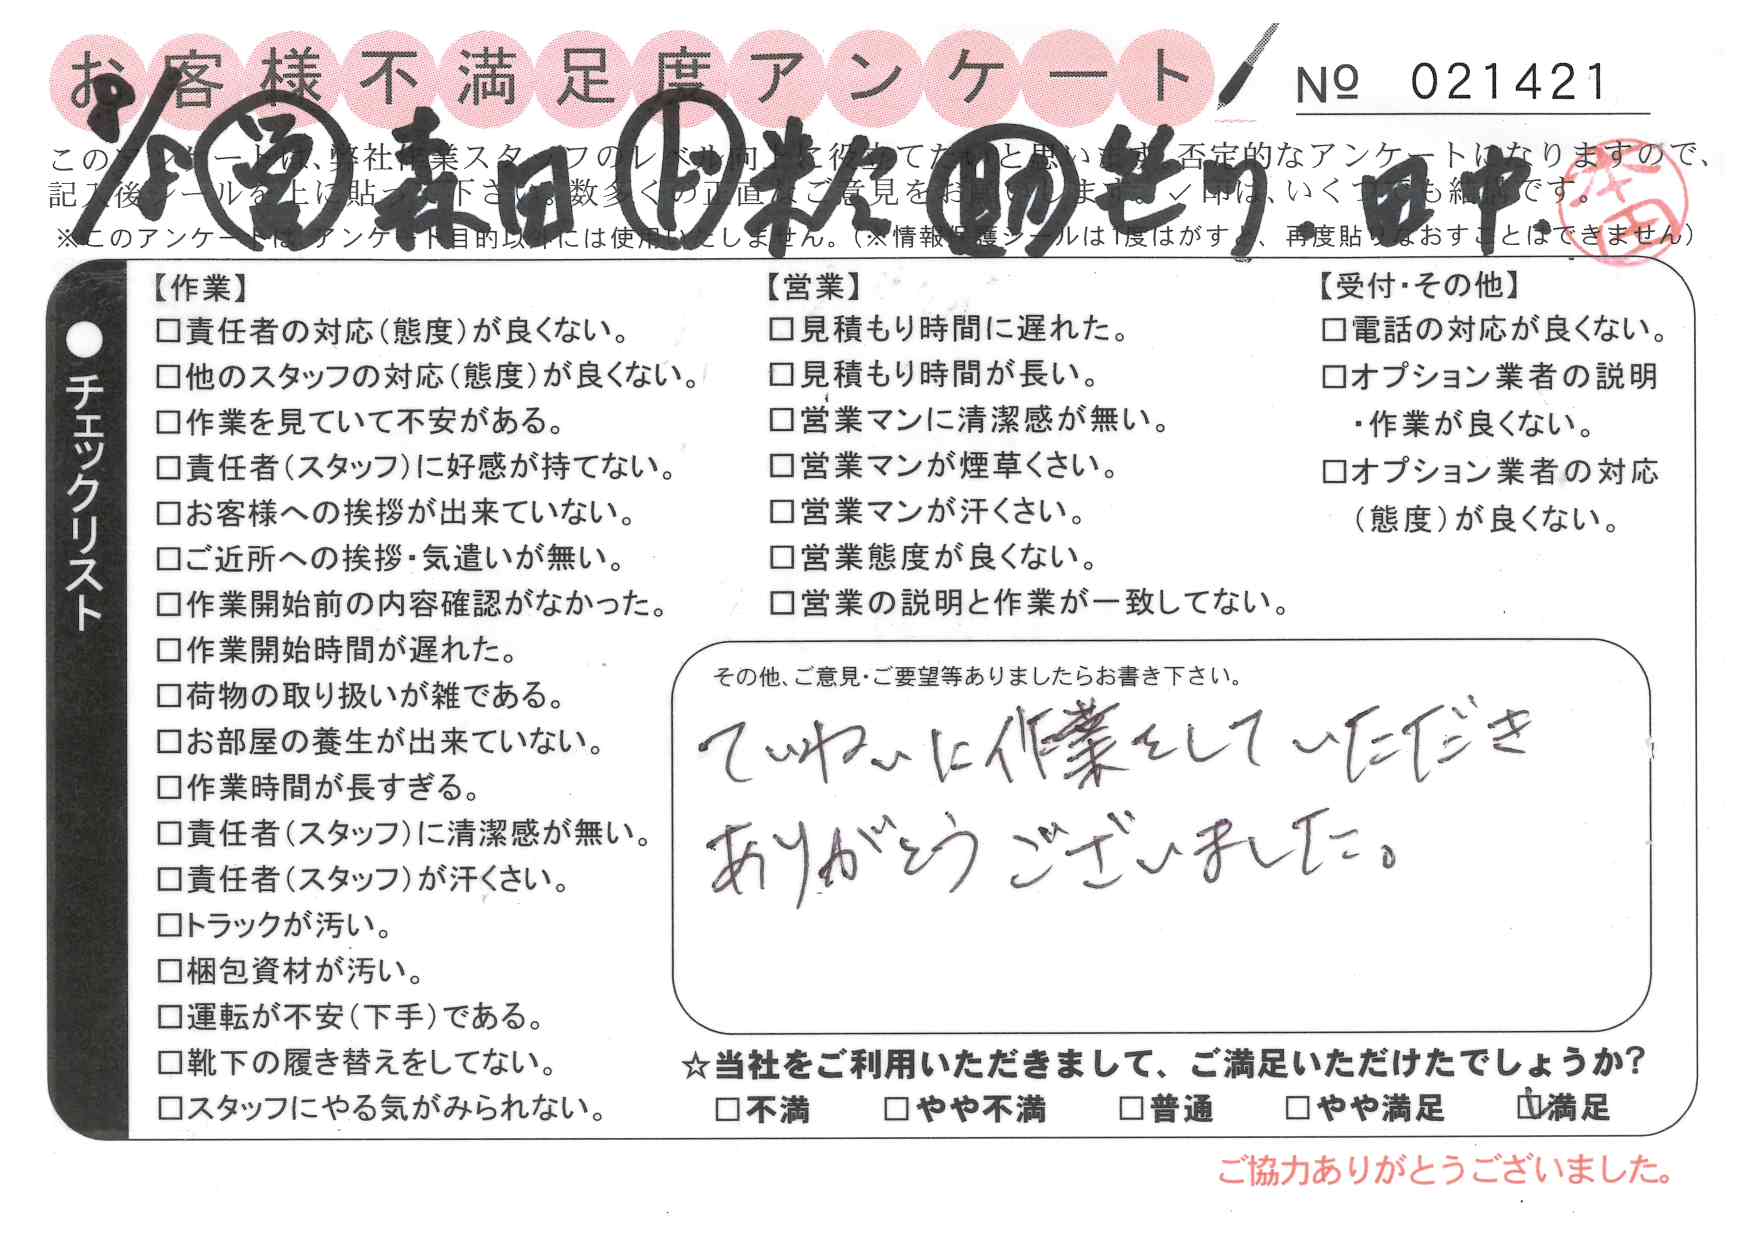 お客様不満足度アンケート
№ 021421
このアンケートは、弊社作業スタッフのレベル向上に役立てたいと思います。否定的なアンケートになりますので、
記入後シールを上に貼って下さい。数多くの正直なご意見をお願いします。✓印は、いくつでも結構です。
※このアンケートは、アンケート目的以外には使用いたしません。(※情報保護シールは1度はがすと、再度貼りなおすことはできません)
営 森田 ド 助 田中
本田
●チェックリスト
【作業】
□責任者の対応(態度)が良くない。
□他のスタッフの対応(態度)が良くない。
□作業を見ていて不安がある。
□責任者(スタッフ)に好感が持てない。
□お客様への挨拶が出来ていない。
□ご近所への挨拶・気遣いが無い。
□作業開始前の内容確認がなかった。
□作業開始時間が遅れた。
□荷物の取り扱いが雑である。
□お部屋の養生が出来ていない。
□作業時間が長すぎる。
□責任者(スタッフ)に清潔感が無い。
□責任者(スタッフ)が汗くさい。
□トラックが汚い。
□梱包資材が汚い。
□運転が不安(下手)である。
□靴下の履き替えをしてない。
□スタッフにやる気がみられない。
【営業】
□見積もり時間に遅れた。
□見積もり時間が長い。
□営業マンに清潔感が無い。
□営業マンが煙草くさい。
□営業マンが汗くさい。
□営業態度が良くない。
□営業の説明と作業が一致してない。
【受付・その他】
□電話の対応が良くない。
□オプション業者の説明
・作業が良くない。
□オプション業者の対応
(態度)が良くない。
その他、ご意見・ご要望等ありましたらお書き下さい。
ていねいに作業をしていただき
ありがとうございました。
☆当社をご利用いただきまして、ご満足いただけたでしょうか?
□不満 □やや不満 □普通 □やや満足 ☑満足
ご協力ありがとうございました。